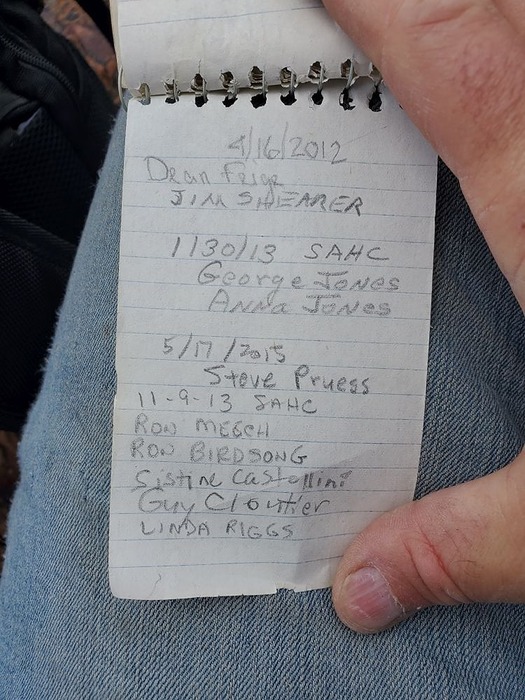 4/16/2012
Dean Feige
JIM SHEARER
1/30/13 SAHC
George Jones
ANNA JONES
5/17/2015
Steve Pruess
11-9-13 SAHC
RON MEECH
RON BIRDSONG
Sistine Castellini
Guy Cloutier
LINDA RIGGS